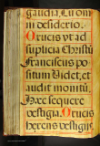 gaudia. Euom
in desiderio.
Crucis vt ad
suplicia Christū
Franciscus po
situm videt, et
audit monitū.
Haec sequere
vestigia. Crucis
percius vestigi